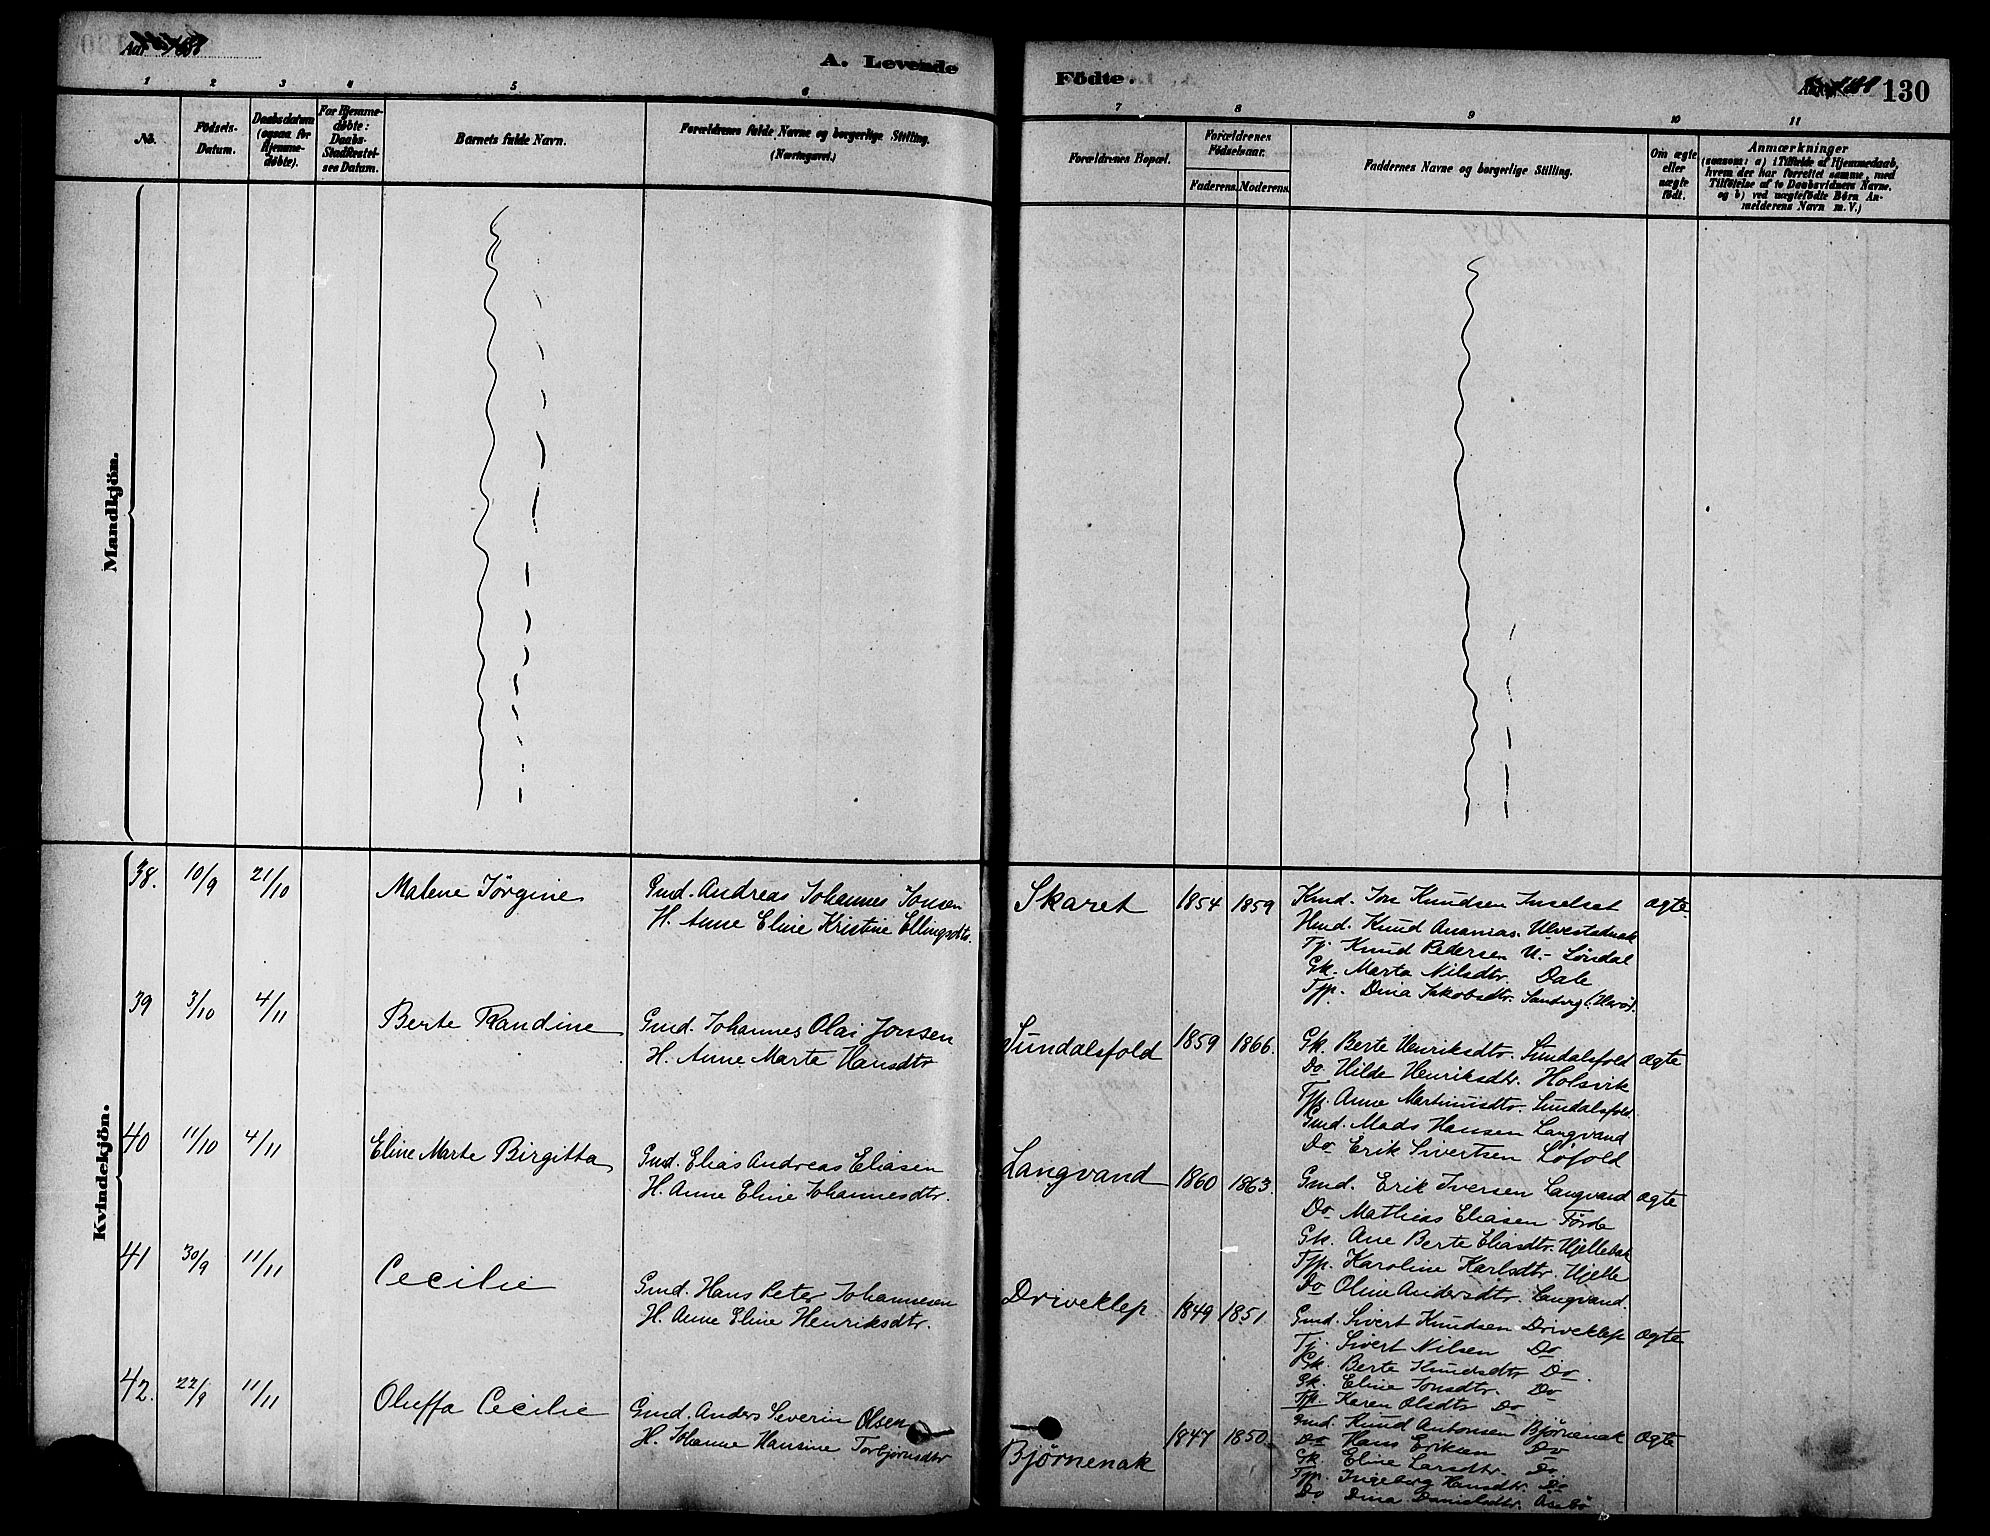 Aar
A. Levende
Födte.
130
1 2 3 4 5 6 7 8 9 10 11
No.
Födsels-
Datum.
Daabsdatum
(ogsaa for
Hjemme-
døbte).
For Hjemme-
døbte:
Daabs-
Stadfæstel-
ses Datum.
Barnets fulde Navn.
Forældrenes fulde Navne og borgerlige Stilling.
(Næringsvei.)
Forældrenes Bopæl.
Forældrenes
Fødselsaar.
Faderens. Moderens.
Faddernes Navne og borgerlige Stilling.
Om ægte
eller
uægte
født.
Anmærkninger
(saasom: a) i Tilfælde af Hjemmedaab,
hvem der har forrettet samme, med
Tilføielse af to Daabsvidners Navne.
og b) ved uægtefødte Børn An-
melderens Navn m. V.)
Mandkjön.
Kvindekjön.
38. 10/9 21/10 Malene Jørgine
Gmd. Andreas Johannes Jonsen
H. Anne Eline Kristine Ellingsdtr.
Skaret 1854 1859
Kmd. Jon Knudsen Inselset
Hmd. Knud Ananias. Ulvestadnak
Tj. Knud Pedersen U.- Løndal
Gk. Marta Nilsdtr. Dale
Tjp. Dina Jakobsdtr. Sandvig (Herø).
ægte
39 3/10 4/11 Berte Randine
Gmd. Johannes Olai Jonsen
H. Anne Marte Hansdtr
Sundalsfold 1859 1866.
Gk. Berte Henriksdtr. Sundalsfold
Do Hilde Henriksdtr. Holsvik
Tjp. Anne Martinusdtr. Sundalsfold.
Gmd. Mads Hansen Langvand
Do Erik Sivertsen Løfold
ægte
40 11/10 4/11 Eline Marte Birgitta
Gmd. Elias Andreas Eliasen
H. Anne Eline Johannesdtr.
Langvand 1860 1863.
Gmd. Erik Iversen Langvand
Do Mathias Eliasen Førde
Gk. Ane Berte Eliasdtr. Hjellebak
Tjp. Karoline Karlsdtr. Hjelle
Do Oline Andersdtr. Langvand.
ægte
41 30/9 11/11 Cecilie
Gmd. Hans Peter Johannesen
H. Anne Eline Henriksdtr.
Driveklep 1849 1851.
Gmd. Sivert Knudsen Driveklep
Tj. Sivert Nilsen Do
Gk. Berte Knudsdtr Do.
Gk. Eline Jonsdtr. Do
Tjp. Karen Olsdtr Do
ægte
42. 22/9 11/11 Oluffa Cecilie
Gmd. Anders Severin Olsen
H. Johanne Hansine Torbjørnsdtr
Bjørnenak 1847 1850
Gmd. Knud Antonsen Bjørnenak
Do Hans Eriksen Do
Gk. Eline Larsdtr. Do.
Tjp. Ingeborg Hansdtr. Do
Do Dina Danielsdtr. Aasebø
ægte